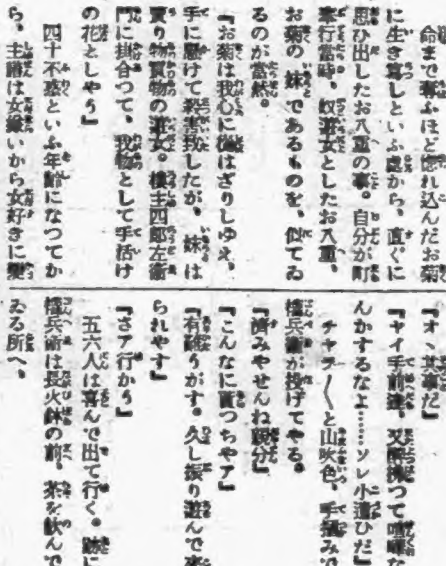 命まで奪ふほど惚れ込んだお菊
に生き寫しといふ處から、直ぐに
思ひ出したお八重の事。自分が町
奉行當時、奴遊女としたお八重、
お菊の妹であるものを、似てゐ
るのが當然。
『お菊は我心に從はざりしゆえ、
手に懸けて殺害致したが、妹は
賣り物買物の遊女。樓主四郎左衞
門に掛合つて、我物として手活け
の花としやう』
四十不惑といふ年齡になつてか
ら、主膳は女嫌いから女好きに變
『オヽ其事だ』
『ヤイ手前達、又醉拂つて喧嘩な
んかするなよ……ソレ小遣ひだ』
チャラ〳〵と山吹色、手掴みで
權兵衞が投げてやる。
『濟みやせんね親分』
『こんなに貰つちやア』
『有難うがす。久し振り遊んで來
られやす』
『さア行かう』
五六人は喜んで出て行く。跡に
權兵衞は長火鉢の前。茶を飮んで
ゐる所へ、